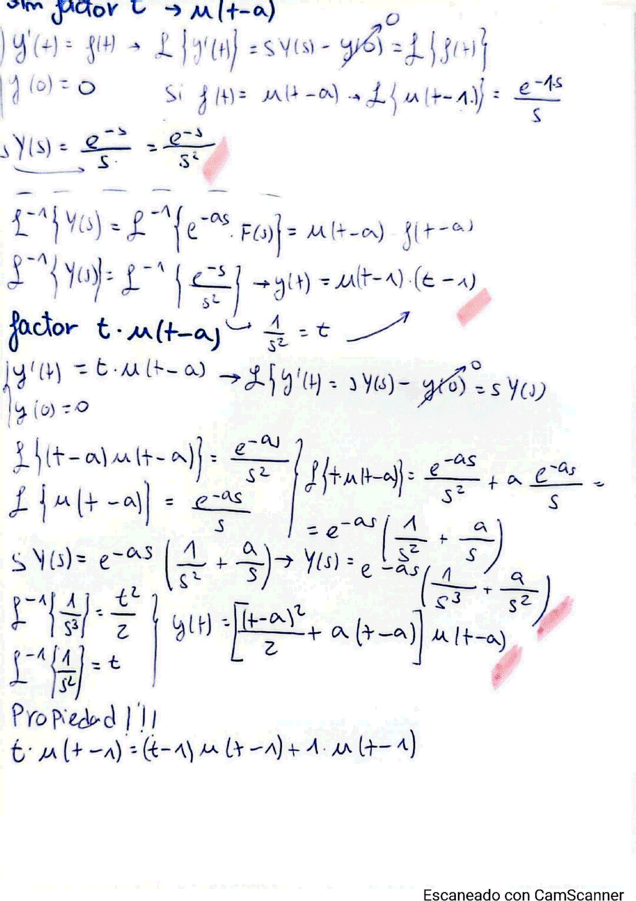 sin factor t → u(t-a)
y'(t) = f(t) → L{y'(t)} = sY(s) - y(0) = L{f(t)}
0
y(0) = 0 Si f(t) = u(t-a) → L{u(t-1)} = e^-1·s / s
sY(s) = e^-s / s = e^-s / s²
L^-1{Y(s) = L^-1{e^-as · F(s)} = u(t-a) · f(t-a)
L^-1{Y(s)} = L^-1{e^-s / s²} → y(t) = u(t-1)·(t-1)
factor t·u(t-a) 1/s² = t
y'(t) = t·u(t-a) → L{y'(t) = sY(s) - y(0) = sY(s)
0
y(0)=0
L{(t-a)u(t-a)} = e^-as / s²
L{u(t-a)} = e^-as / s
L{tu(t-a)} = e^-as / s² + a e^-as / s =
= e^-as (1/s² + a/s)
sY(s) = e^-as (1/s² + a/s) → Y(s) = e^-as (1/s³ + a/s²)
L^-1{1/s³} = t²/2
L^-1{1/s²} = t
y(t) = [(t-a)²/2 + a(t-a)] u(t-a)
Propiedad!!!
t·u(t-1) = (t-1)u(t-1) + 1·u(t-1)
Escaneado con CamScanner